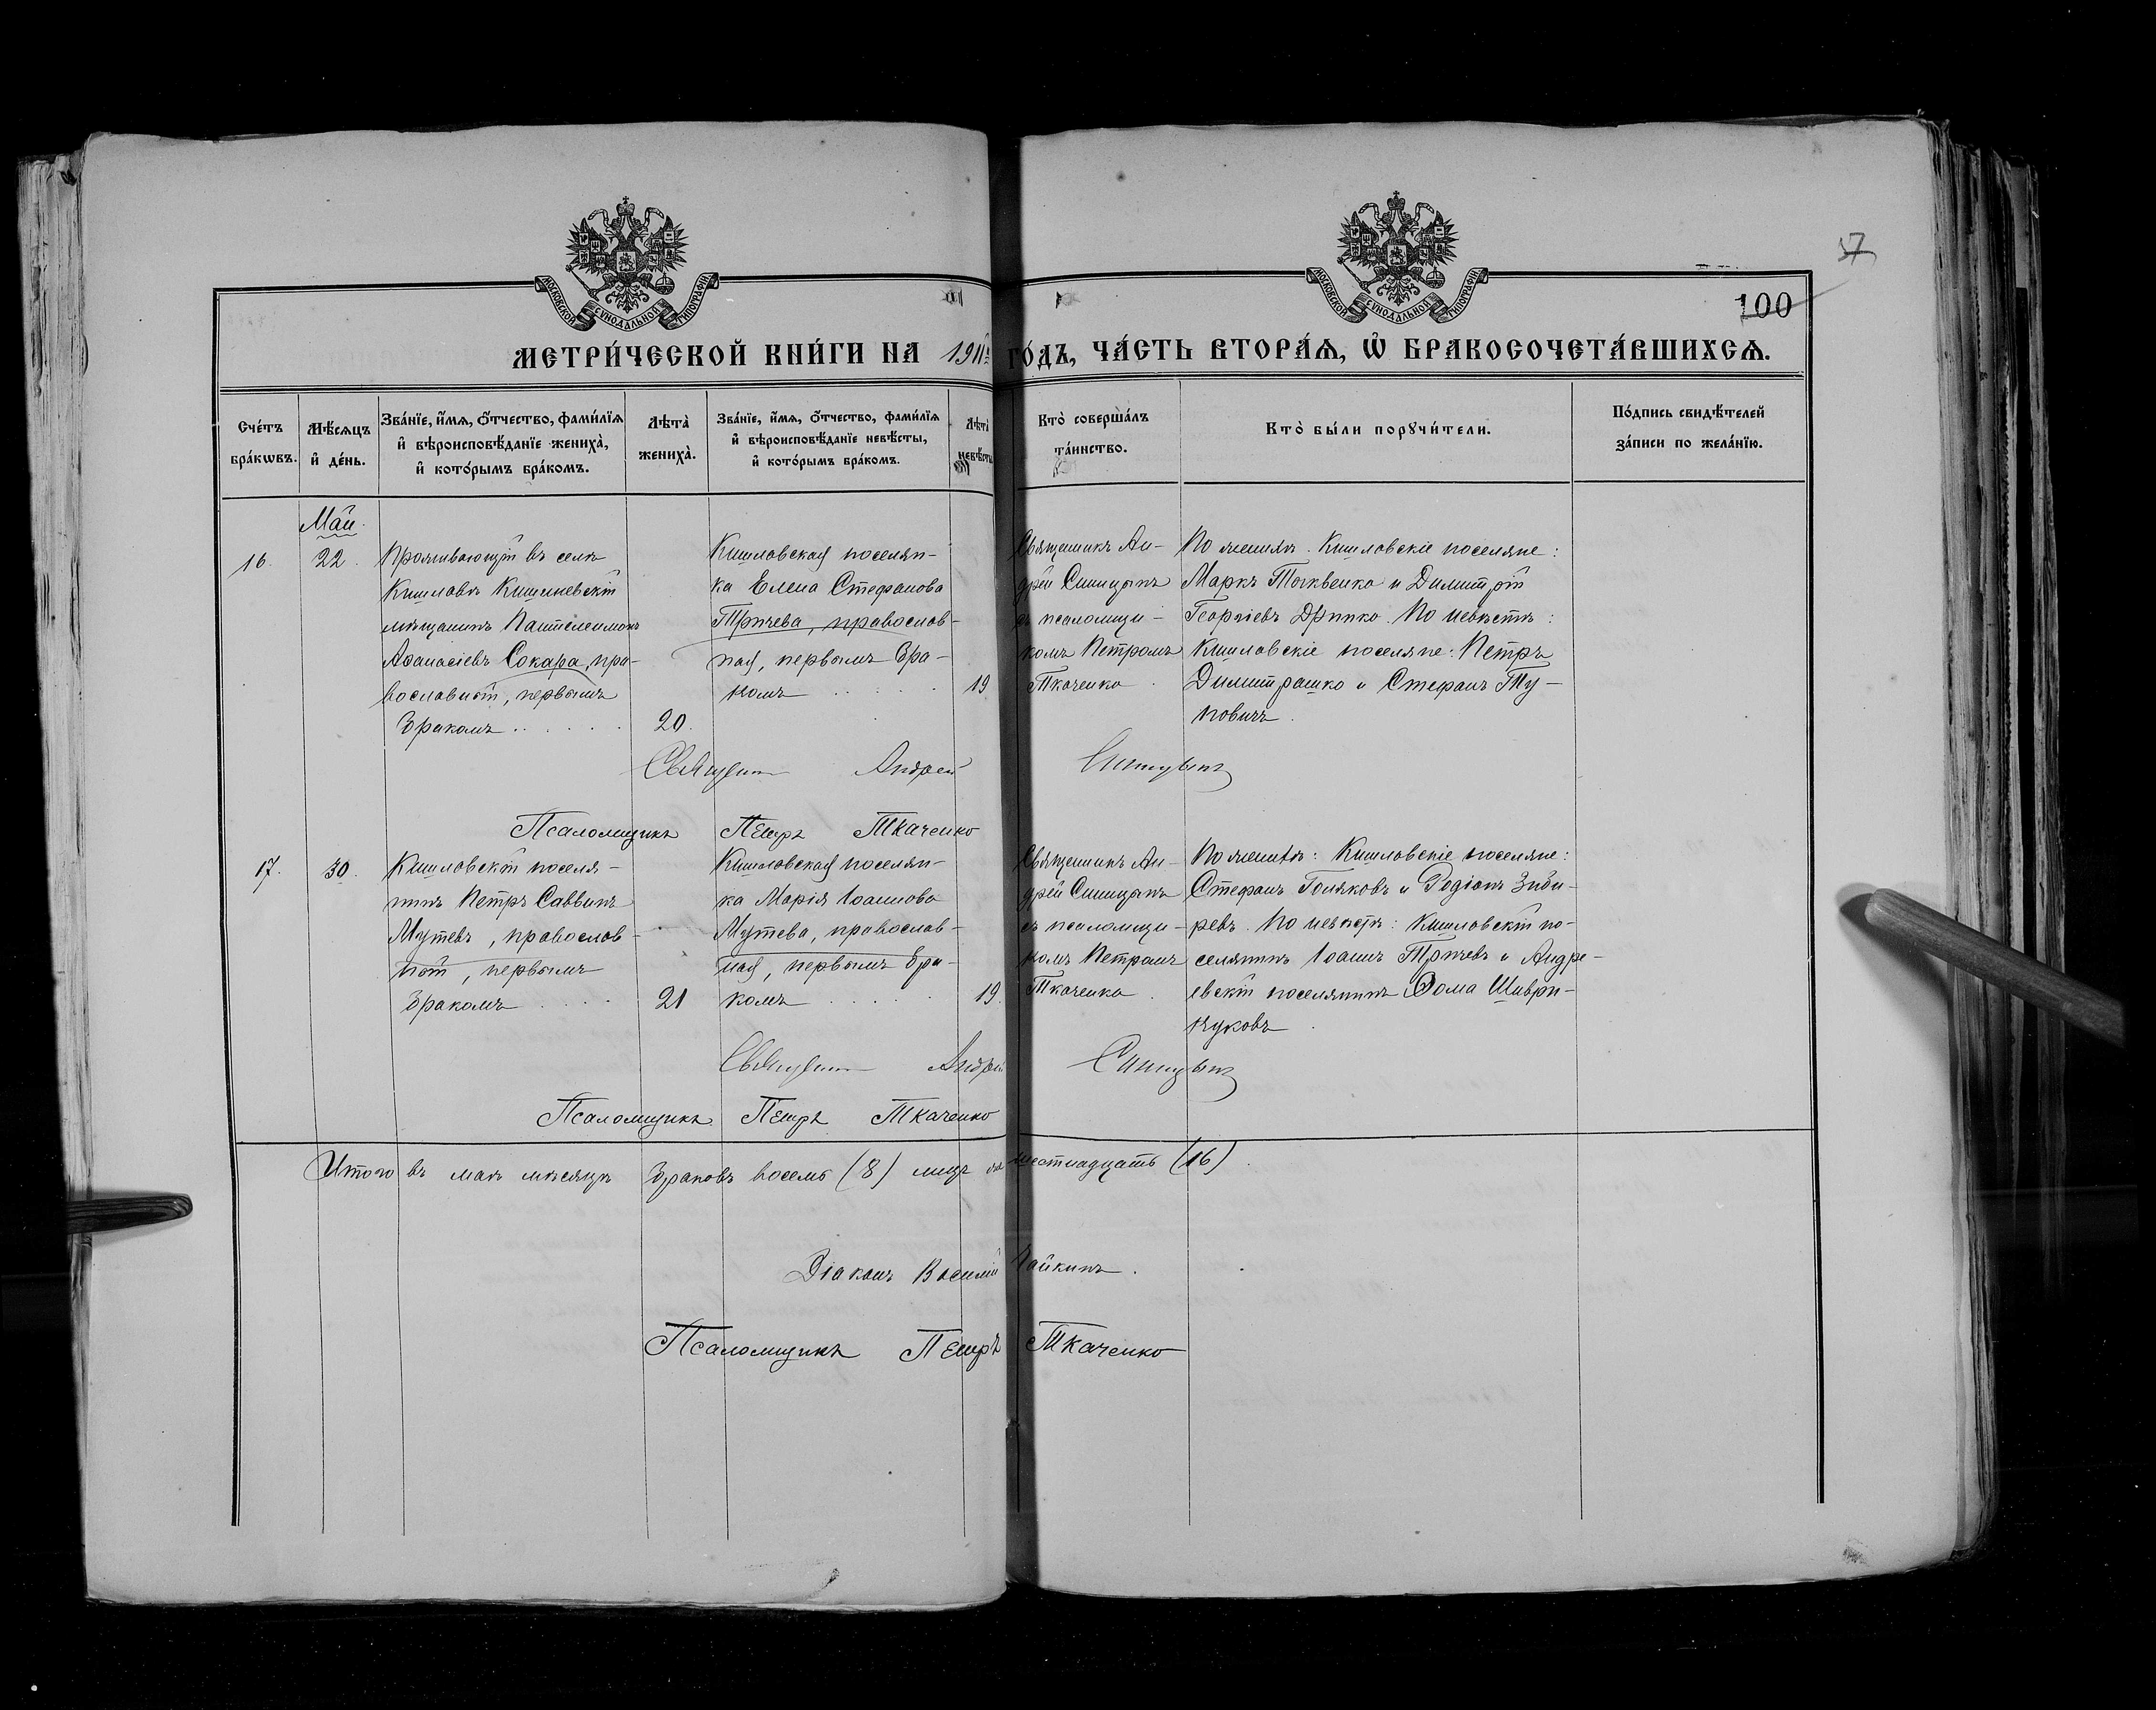 МОСКОВСКОЙ СУНОДАЛЬНОЙ ТИПОГРАФІИ
МОСКОВСКОЙ СУНОДАЛЬНОЙ ТИПОГРАФІИ
100
МЕТРИ́ЧЕСКОЙ КНИ́ГИ НА 1911й ГО́ДЪ, ЧА́СТЬ ВТОРА́Ѧ, Ѽ БРАКОСОЧЕТА́ВШИХСѦ.
Сче́тъ
бра́кѡвъ.
Мѣ́сѧцъ
и҆ де́нь.
Зва́нїе, и҆́мѧ, ѻ҆́тчество, фами́лїѧ
и҆ вѣроисповѣ́данїе жениха̀,
и҆ кото́рымъ бра́комъ.
Лѣта̀
жениха̀.
Зва́нїе, и҆́мѧ, ѻ҆́тчество, фами́лїѧ
и҆ вѣроисповѣ́данїе невѣ́сты,
и҆ кото́рымъ бра́комъ.
Лѣта̀
невѣ́сты
Кто̀ соверша́лъ
та́инство.
Кто̀ бы́ли порꙋчи́тели.
По́дпись свидѣ́телей
за́писи по жела́нїю.
Май.
16.
22.
Проживающій въ селѣ
Кишловѣ Кишиневскій
мѣщанинъ Пантелеимонъ
Аѳанасіевъ Сокара, пра-
вославный, первымъ
бракомъ
20.
Кишловская поселян-
ка Елена Стефанова
Тричева, православ-
ная, первымъ бра-
комъ
19
Священникъ Ан-
дрей Синицынъ
съ псаломщи-
комъ Петромъ
Ткаченко.
По женихѣ. Кишловскіе поселяне:
Маркъ Токвенко и Димитрій
Георгіевъ По невѣстѣ:
Кишловскіе поселяне: Петръ
Димитрашко и Стефанъ Ту-
повичъ.
Священ Андрей Синицынъ
Псаломщикъ Петръ Ткаченко
17.
30.
Кишловскій поселя-
нинъ Петръ Саввинъ
Мутевъ, православ-
ный, первымъ
бракомъ
21
Кишловская поселян-
ка Марія Іоаннова
Мутева, православ-
ная, первымъ бра-
комъ
19.
Священникъ Ан-
дрей Синицынъ
съ псаломщи-
комъ Петромъ
Ткаченко.
По женихѣ: Кишловскіе поселяне:
Стефанъ Голяковъ и Родіонъ
ревъ. По невѣстѣ: Кишловскій по-
селянинъ Іоаннъ Тричевъ и Андре-
евскій поселянинъ Ѳома
Священ Андрей Синицынъ
Псаломщикъ Петръ Ткаченко
Итого въ маѣ мѣсяцѣ браковъ восемь (8) лицъ шестнадцать (16).
Діаконъ Василій Чайкинъ.
Псаломщикъ Петръ Ткаченко